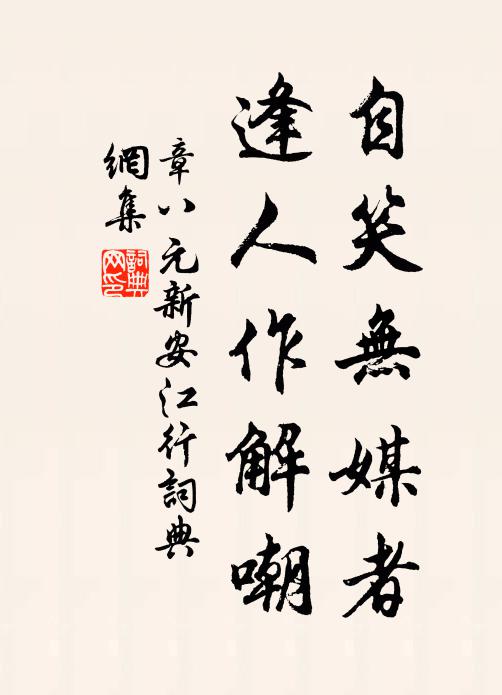 自笑無媒者
逢人作解嘲
章八元新安江行詞典
網集
詞典
网印